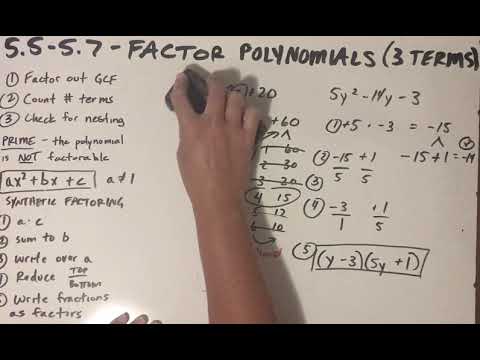 5.5-5.7 - FACTOR POLYNOMIALS (3 TERMS)
① Factor out GCF
② Count # terms
③ Check for nesting
PRIME - the polynomial
is NOT factorable
ax² + bx + c a ≠ 1
SYNTHETIC FACTORING
① a · c
② sum to b
③ write over a
④ Reduce TOP
BOTTOM
⑤ Write fractions
as factors
+20
+60
1 60
2 30
3 20
4 15
5 12
6 10
5y² - 14y - 3
① +5 · -3 = -15
② -15 +1
5 5
-15 + 1 = -14
③
④ -3 +1
1 5
⑤ (y - 3)(5y + 1)